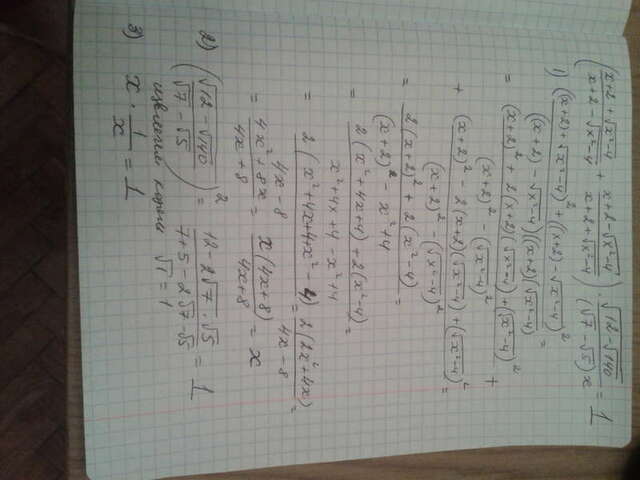 ( (x+2+√(x²-4))/(x+2-√(x²-4)) + (x+2-√(x²-4))/(x+2+√(x²-4)) ) · √(12-√140)/((√7-√5)x) = 1
1) ((x+2)+√(x²-4))²+((x+2)-√(x²-4))² / ((x+2)-√(x²-4))((x+2)(√(x²-4)) =
= (x+2)²+2(x+2)√(x²-4)+(√(x²-4))² / (x+2)²-(√(x²-4))² +
+ (x+2)²-2(x+2)(√(x²-4)+(√(x²-4))² / (x+2)²-(√(x²-4))² =
= 2(x+2)²+2(x²-4) / (x+2)²-x²+4 =
= 2(x²+4x+4)+2(x²-4) / x²+4x+4-x²+4 =
= 2(x²+4x+4+x²-4) / 4x-8 = 2(2x²+4x) / 4x-8 =
= 4x²+8x / 4x+8 = x(4x+8) / 4x+8 = x
2) (√(12-√140) / √7-√5)² = 12-2√7·√5 / 7+5-2√7-√5 = 1
извлекаем корень √1=1
3) x · 1/x = 1